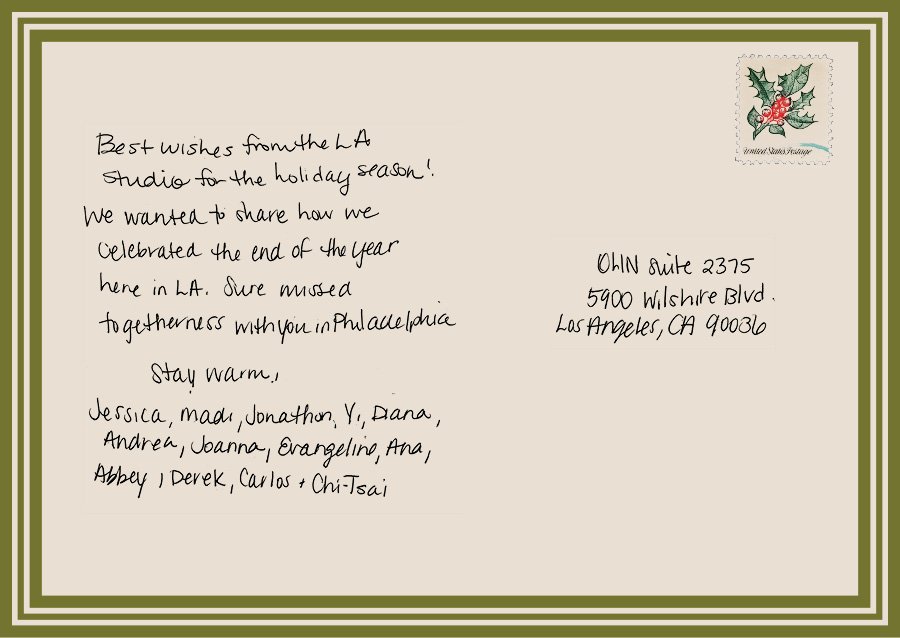 Best wishes from the LA
Studio for the holiday season!
We wanted to share how we
celebrated the end of the year
here in LA. Sure missed
togetherness with you in Philadelphia
Stay warm,
Jessica, Madi, Jonathon, Yi, Diana,
Andrea, Joanna, Evangeline, Ana,
Abbey, Derek, Carlos + Chi-Tsai
United States Postage
OLIN Suite 2375
5900 Wilshire Blvd.
Los Angeles, CA 90036